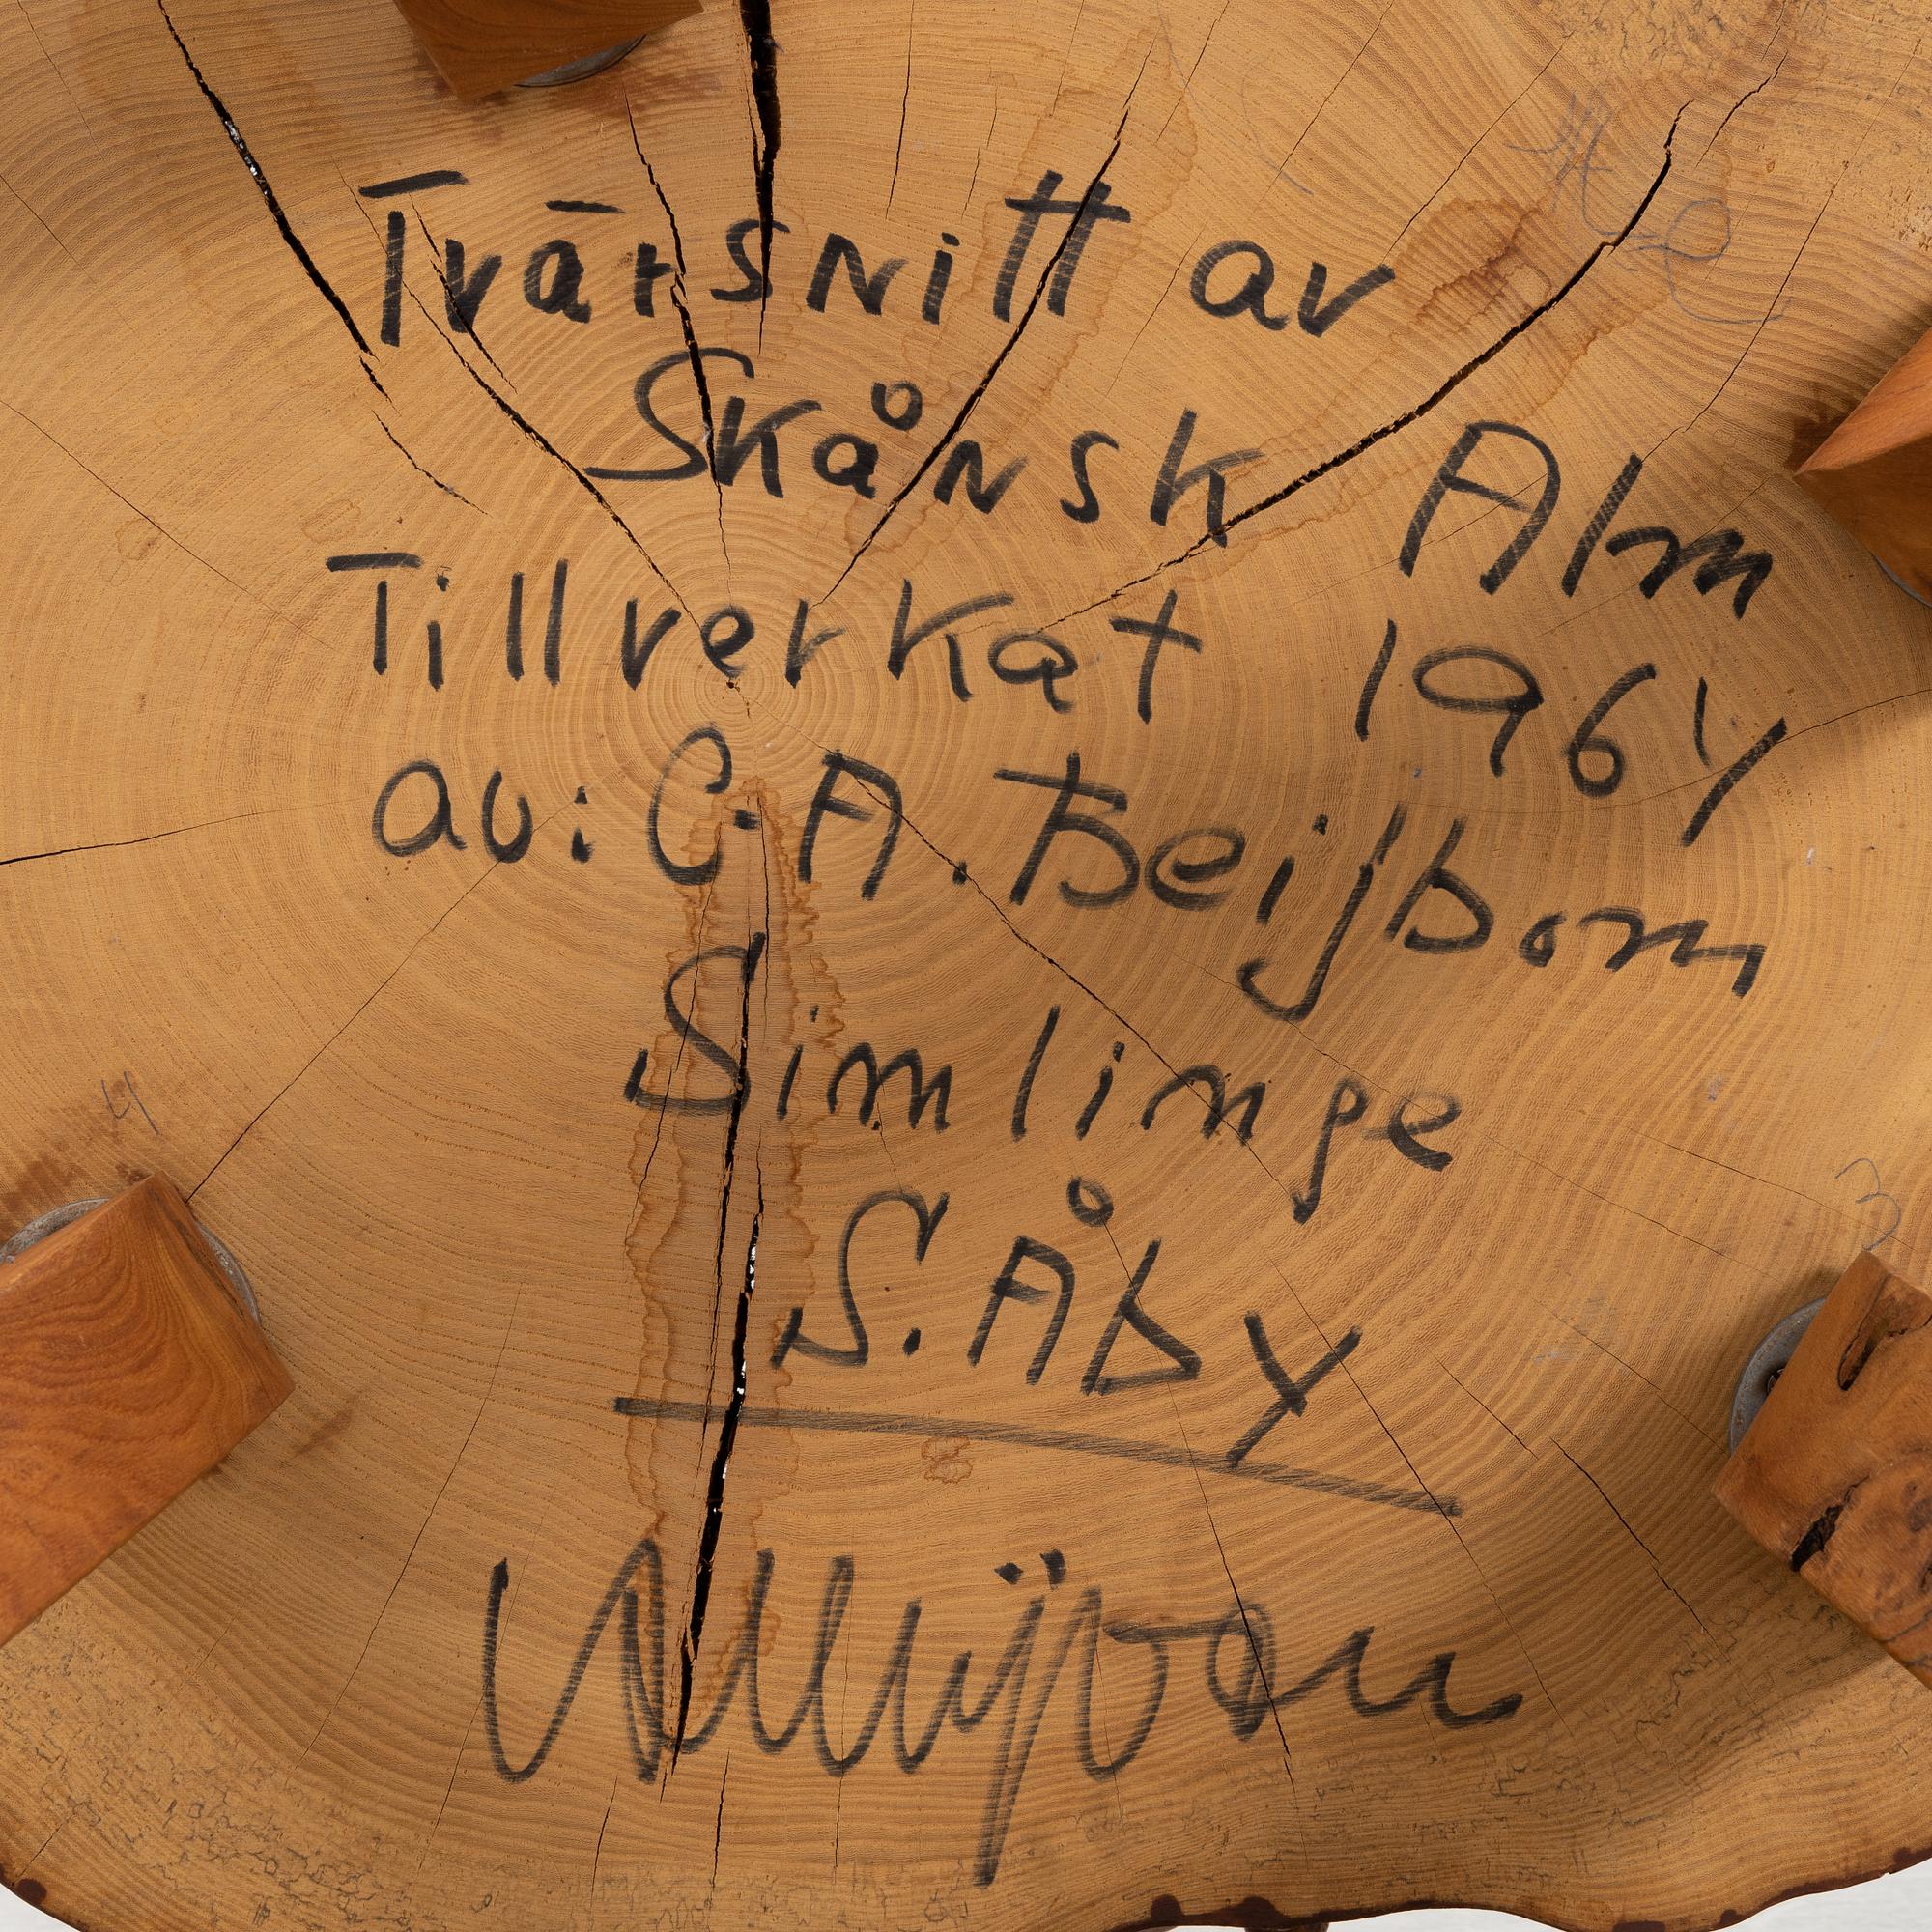 Tvärsnitt av
Skånsk Alm
Tillverkat 1964
av: C.A. Beijbom
Simlinge
S. Åby
4
3